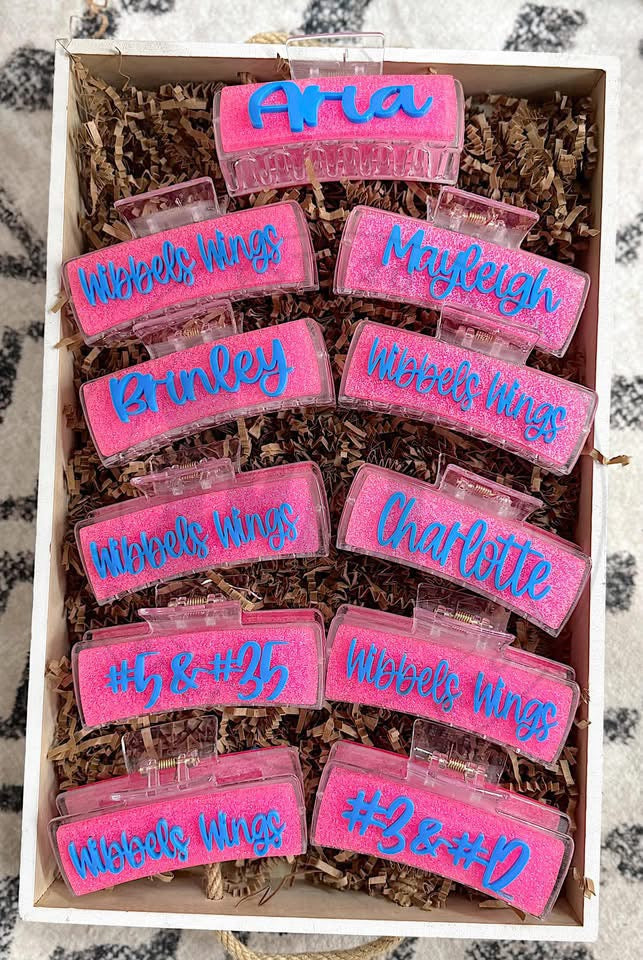 Aria
Wibbels Wings
Mayleigh
Brinley
Wibbels Wings
Wibbels Wings
Charlotte
#5 & #35
Wibbels Wings
Wibbels Wings
#3 & #12